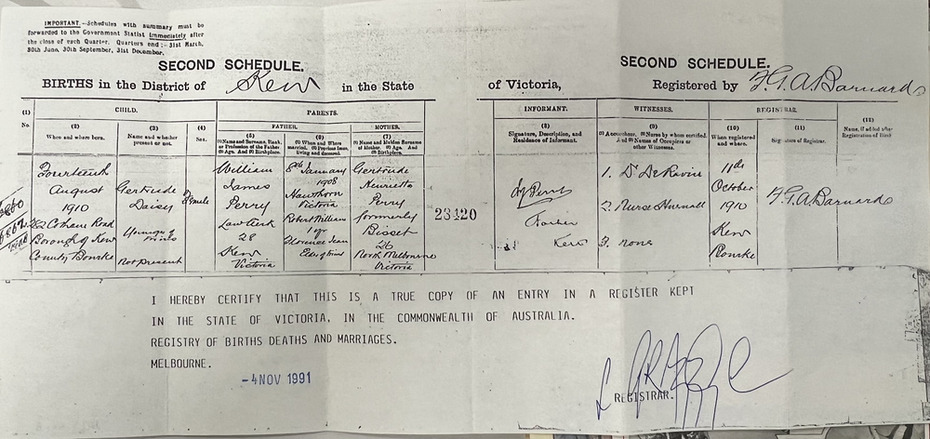 IMPORTANT.—Schedules with summary must be
forwarded to the Government Statist immediately after
the close of each Quarter. Quarters end:— 31st March,
30th June, 30th September, 31st December.
SECOND SCHEDULE.
SECOND SCHEDULE.
BIRTHS in the District of Kew in the State of Victoria, Registered by F. G. A. Barnard
(1) CHILD. PARENTS. INFORMANT. WITNESSES. REGISTRAR. (12)
No. (2) (3) (4) FATHER. MOTHER. (8) (9) (10) (11)
When and where born. Name and whether present or not. Sex. (5) (6) (7)
(1) Name and Surname, Rank or Profession of the Father. (2) Age. And (3) Birthplace.
(1) When and Where married. (2) Previous Issue, living and deceased.
(1) Name and Maiden Surname of Mother. (2) Age. And (3) Birthplace.
Signature, Description, and Residence of Informant.
(1) Accoucheur. (2) Nurse by whom certified. And (3) Names of Occupiers or other Witnesses.
When registered and where.
Signature of Registrar.
Name, if added after Registration of Birth
Fourteenth
August
1910
22 Cotham Road
Borough of Kew
County Bourke
Gertrude
Daisy
Younger of
Twins
Not present
Female
William
James
Perry
Law Clerk
28
Kew
Victoria
8th January
1908
Hawthorn
Victoria
Robert William
1 yr
Florence Jean
Elder of twins
Gertrude
Henrietta
Perry
formerly
Bisset
26
North Melbourne
Victoria
23420
Perry
Father
Kew
1. Dr De Ravin
2. Nurse
3. none
11th
October
1910
Kew
Bourke
F. G. A. Barnard
I HEREBY CERTIFY THAT THIS IS A TRUE COPY OF AN ENTRY IN A REGISTER KEPT
IN THE STATE OF VICTORIA, IN THE COMMONWEALTH OF AUSTRALIA.
REGISTRY OF BIRTHS DEATHS AND MARRIAGES.
MELBOURNE.
-4 NOV 1991
REGISTRAR.